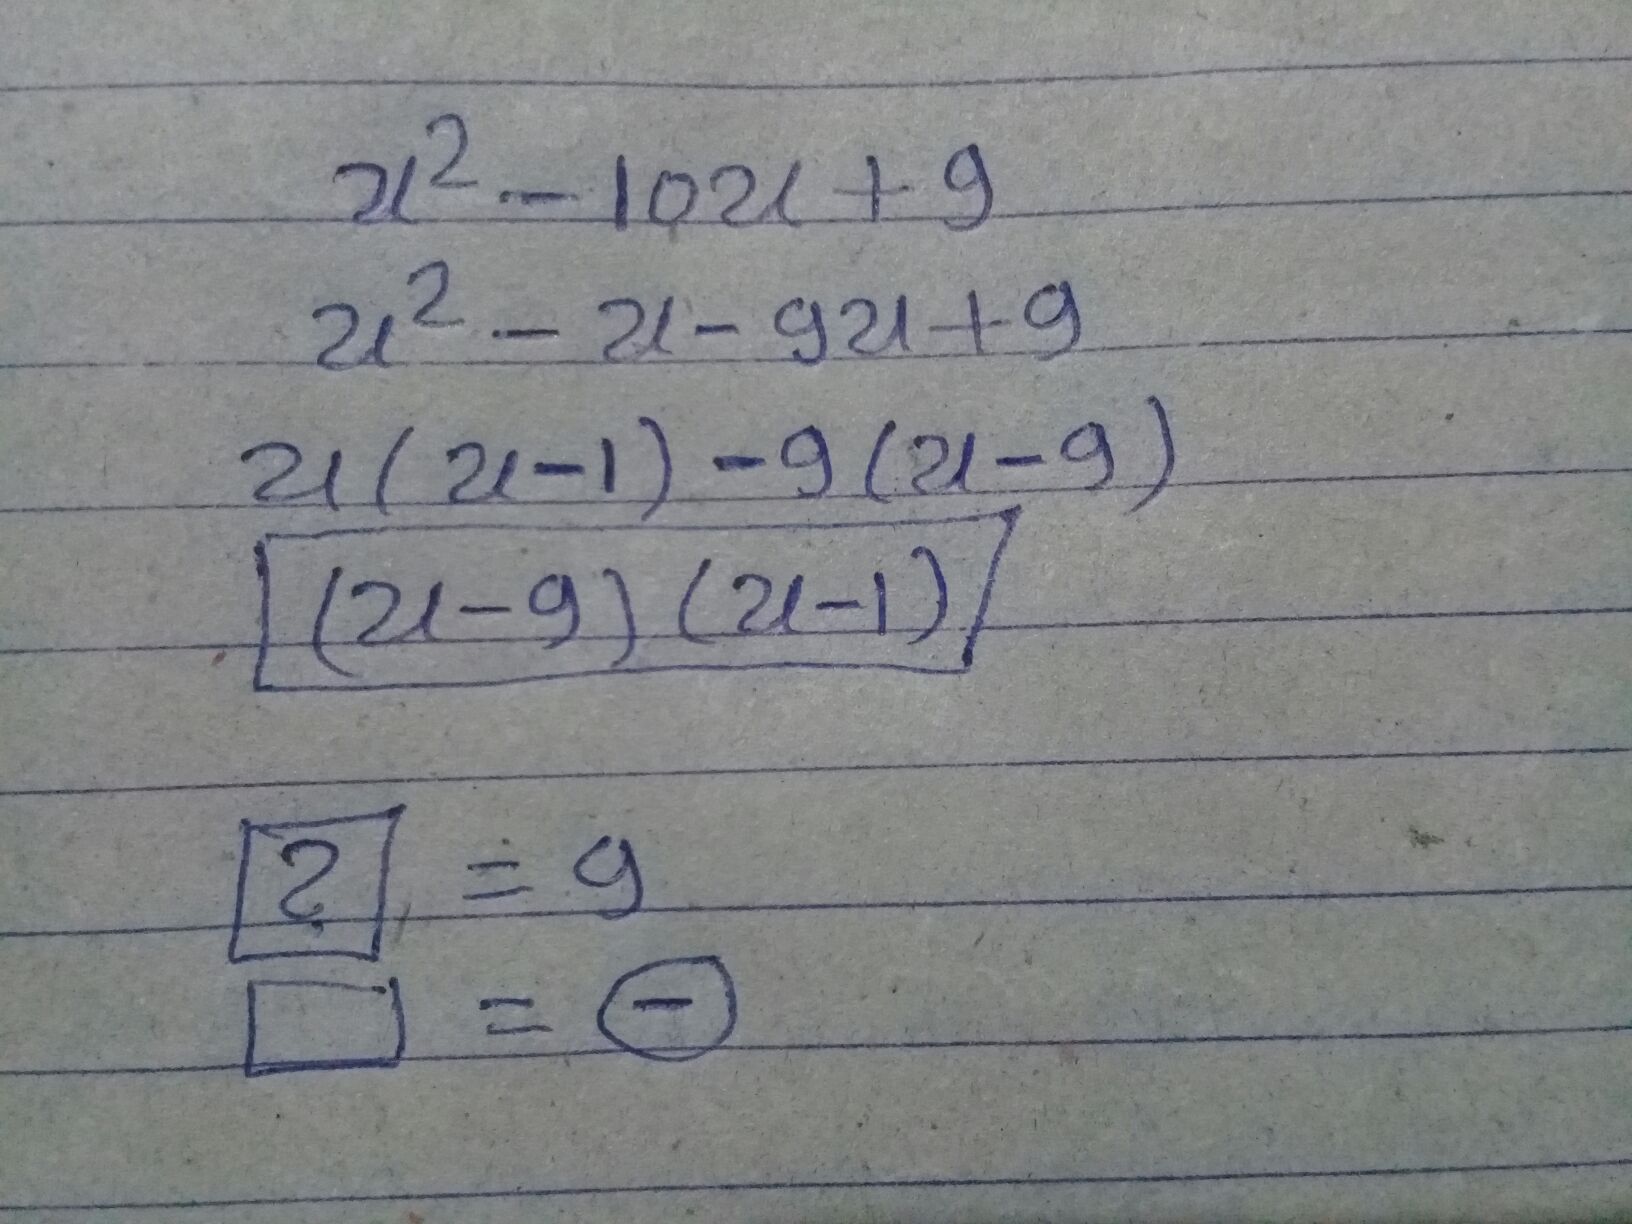 x² - 10x + 9
x² - x - 9x + 9
x(x-1) - 9(x-9)
(x-9)(x-1)
? = 9
□ = -